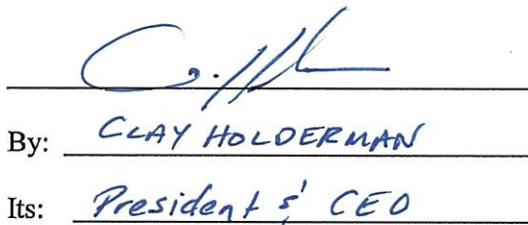 By: CLAY HOLDERMAN
Its: President & CEO